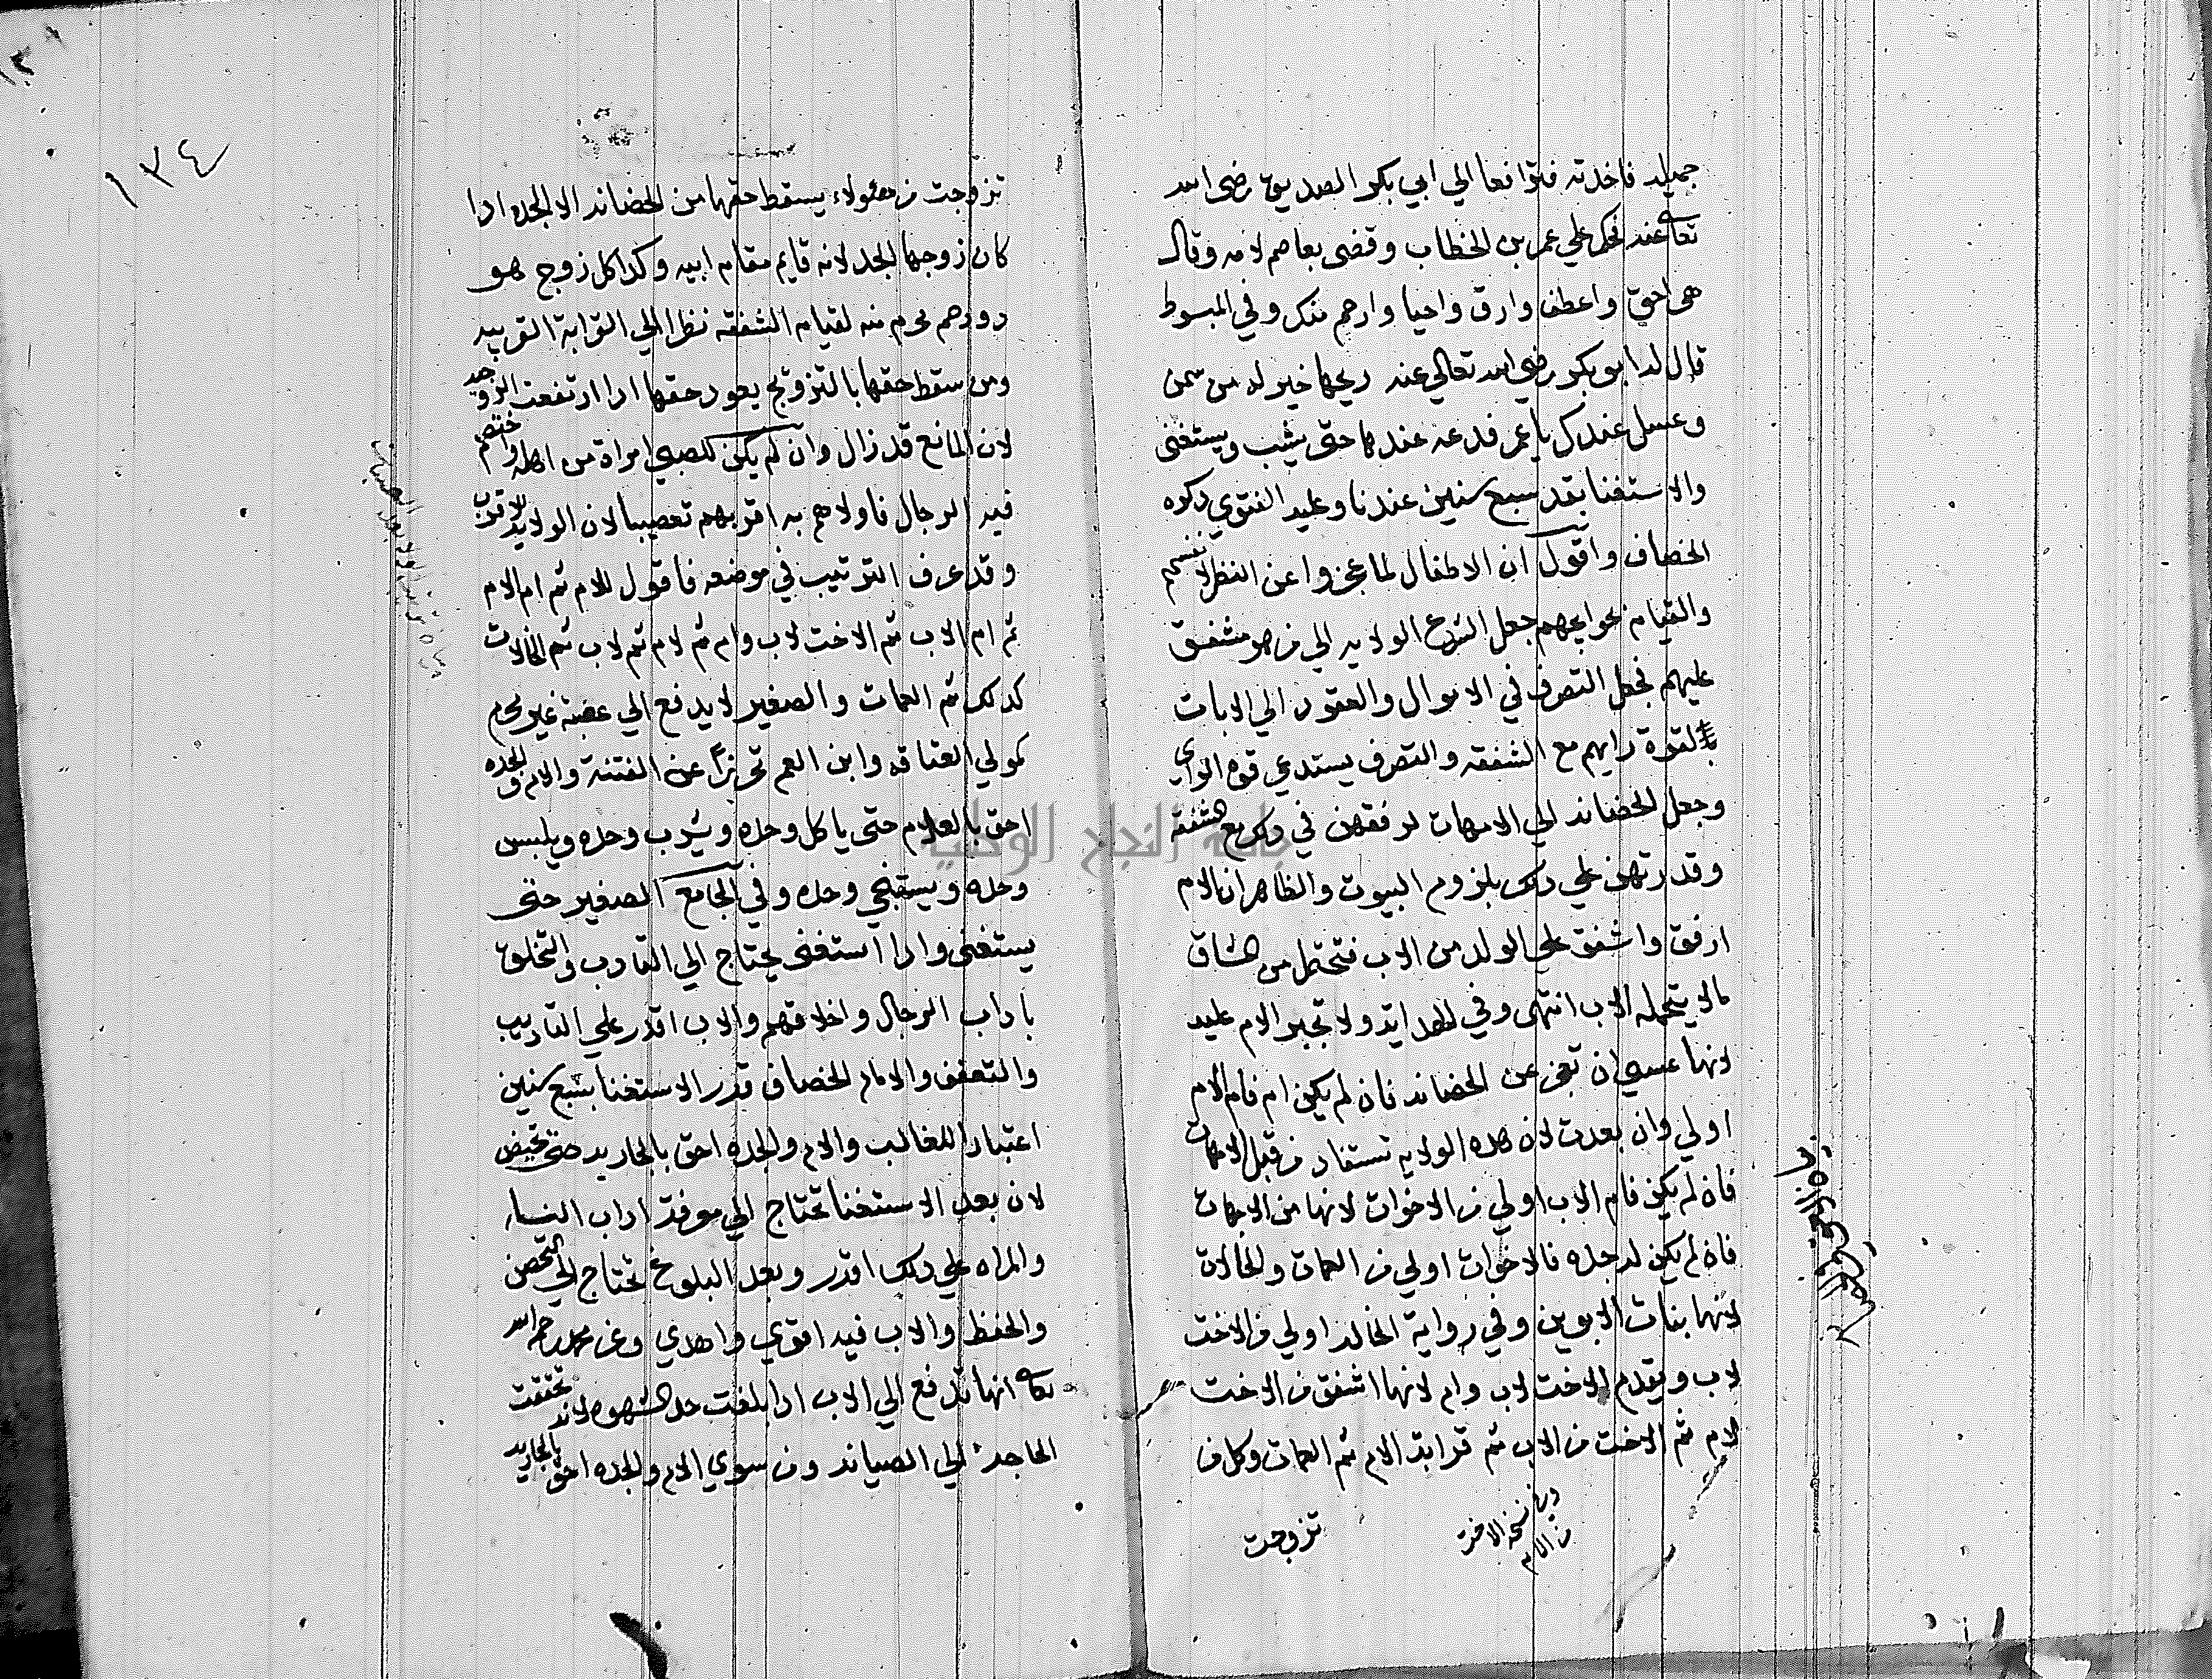 جميله فاخذته فترافعا الي ابي بكر الصديق رضي الله
تعالى عنه فحكم علي عمر بن الخطاب وقضى بعاصم لامه وقال
هي احق واعطف وارق واحيا وارحم منك وفي المبسوط
قال له ابو بكر رضي الله تعالي عنه ريحها خير له من سمن
وعسل عندك يا عمر فدعه عندها حتى يشب ويستغنى
والاستغنا بقدر سبع سنين عندنا وعليه الفتوي دكره
الخصاف واقول ان الاطفال لما عجزوا عن النظر لانفسهم
والقيام بحوايجهم جعل الشرع الولايه الي من هو مشفق
عليهم فجعل التصرف في الاموال والعقود الي الابات
لقوة رايهم مع الشفقه والتصرف يستدعي قوه الراي
وجعل الحضانه الي الامهات لرفقهن في دلك مع الشفقة
وقدرتهن علي دلك بلزوم البيوت والظاهر ان الام
ارفق واشفق علي الولد من الاب فتتحمل من المشاق
مالا يتحمله الاب انتهى وفي الهدايه ولا تجبر الام عليه
لانها عسى ان تعجز عن الحضانه فان لم يكن ام فام الام
اولي وان بعدت لان هده الولايه تستفاد من قبل الامهات
فان لم يكن فام الاب اولي من الاخوات لانها من الامهات
فان لم يكن له جده فالاخوات اولي من العمات والخالات
لانها بنات الابوين وفي رواية الخاله اولي من الاخت
لاب ويقدم الاخت لاب وام لانها اشفق من الاخت
لام ثم الاخت من الاب ثم قرابة الام ثم العمات وكل من
وفي نسخة الاخت
من الام
تزوجت
١٣٤
تزوجت من هؤلاء يسقط حقها من الحضانه الا الجده ادا
كان زوجها الجد لانه قايم مقام ابيه وكدا كل زوج هو
دو رحم محرم منه لقيام الشفقه نظرا الي القرابة القريبه
ومن سقط حقها بالتزوج يعود حقها ادا ارتفعت الزوجيه
لان المانع قد زال وان لم يكن للصبي امراة من اهله واختصم
فيه الرجال فاولاهم به اقربهم تعصيبا لان الولايه للاقرب
وقد عرف الترتيب في موضعه فاقول للام ثم ام الام
ثم ام الاب ثم الاخت لاب وام ثم لام ثم لاب ثم الخالات
كدلك ثم العمات والصغير لا يدفع الي عصبة غير محرم
كمولي العتاقه وابن العم تحرزا عن الفتنة والام والجده
احق بالغلام حتى ياكل وحده ويشرب وحده ويلبس
وحده ويستنجي وحده وفي الجامع الصغير حتى
يستغنى وادا استغنى يحتاج الي التادب والتخلق
باداب الرجال واخلاقهم والاب اقدر علي التاديب
والتعفف والامام الخصاف قدر الاستغنا بسبع سنين
اعتبارا للغالب والام والجده احق بالجاريه حتى تحيض
لان بعد الاستغنا تحتاج الي معرفة اداب النساء
والمراه علي دلك اقدر وبعد البلوغ تحتاج الي التحصن
والحفظ والاب فيه اقوي واهدي وعن محمد رحمه الله
تعالى انها تدفع الي الاب ادا بلغت حد الشهوه لانه تحققت
الحاجة الي الصيانه ومن سوي الام والجده احق بالجاريه
جامعة النجاح الوطنية